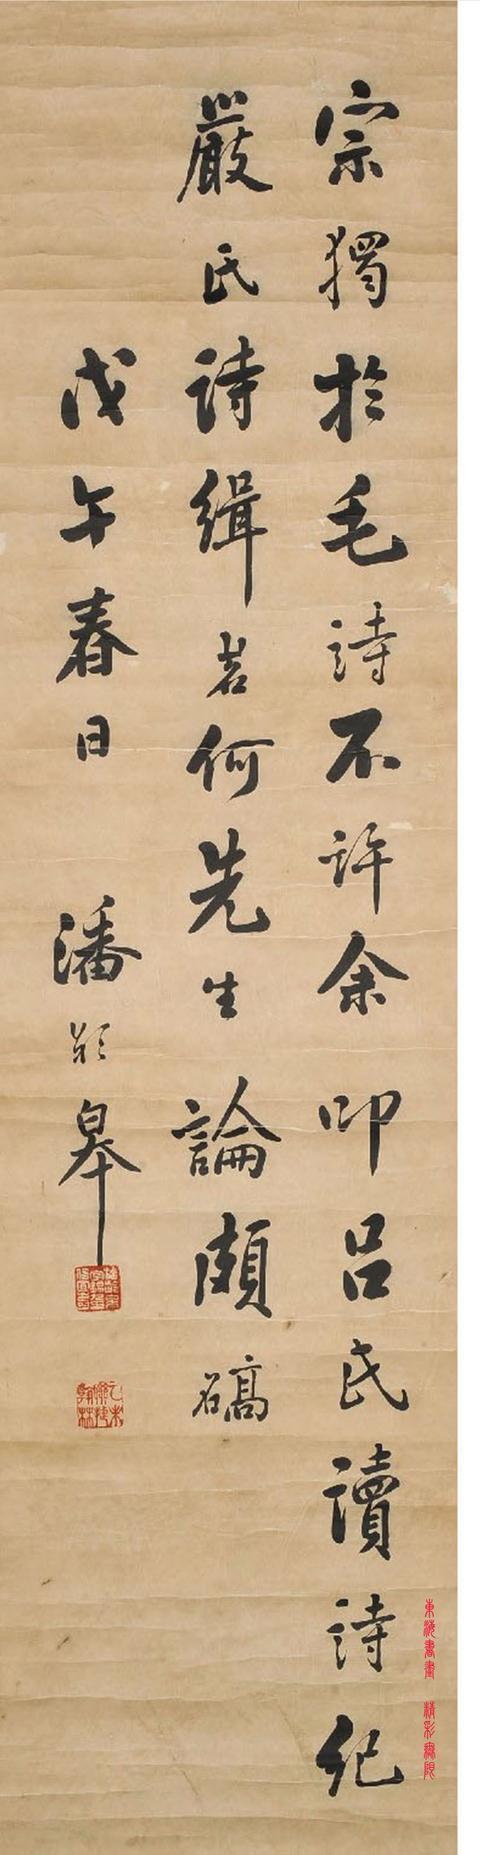 宗獨於毛詩不許余叩呂氏讀詩紀
嚴氏詩緝若何先生論頗碻
戊午春日
潘齡皋
東海書畫 精彩無限